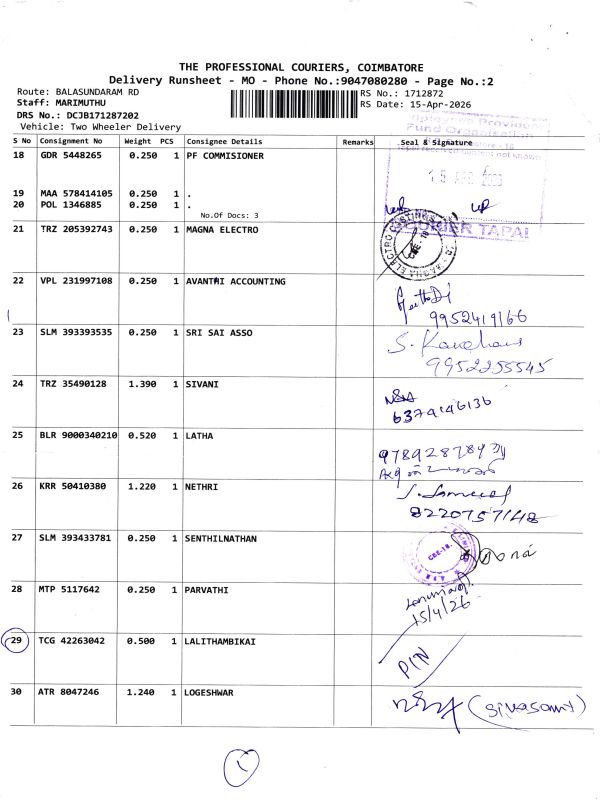 THE PROFESSIONAL COURIERS, COIMBATORE
Delivery Runsheet - MO - Phone No.:9047080280 - Page No.:2
Route: BALASUNDARAM RD RS No.: 1712872
Staff: MARIMUTHU RS Date: 15-Apr-2026
DRS No.: DCJB171287202
Vehicle: Two Wheeler Delivery
S No Consignment No Weight PCS Consignee Details Remarks Seal & Signature
Fund Organisation
18 GDR 5448265 0.250 1 PF COMMISIONER
15 APR
19 MAA 578414105 0.250 1 .
20 POL 1346885 0.250 1 .
No.Of Docs: 3
TAPAL
21 TRZ 205392743 0.250 1 MAGNA ELECTRO
MAGNA ELECTRO CASTINGS
CBE-18
22 VPL 231997108 0.250 1 AVANTHI ACCOUNTING
9952419166
23 SLM 393393535 0.250 1 SRI SAI ASSO
9952255545
24 TRZ 35490128 1.390 1 SIVANI
6379146136
25 BLR 9000340210 0.520 1 LATHA
26 KRR 50410380 1.220 1 NETHRI
8220757148
27 SLM 393433781 0.250 1 SENTHILNATHAN
CBE-18
28 MTP 5117642 0.250 1 PARVATHI
15/4/26
29 TCG 42263042 0.500 1 LALITHAMBIKAI
PIN
30 ATR 8047246 1.240 1 LOGESHWAR
(Sivasamy)